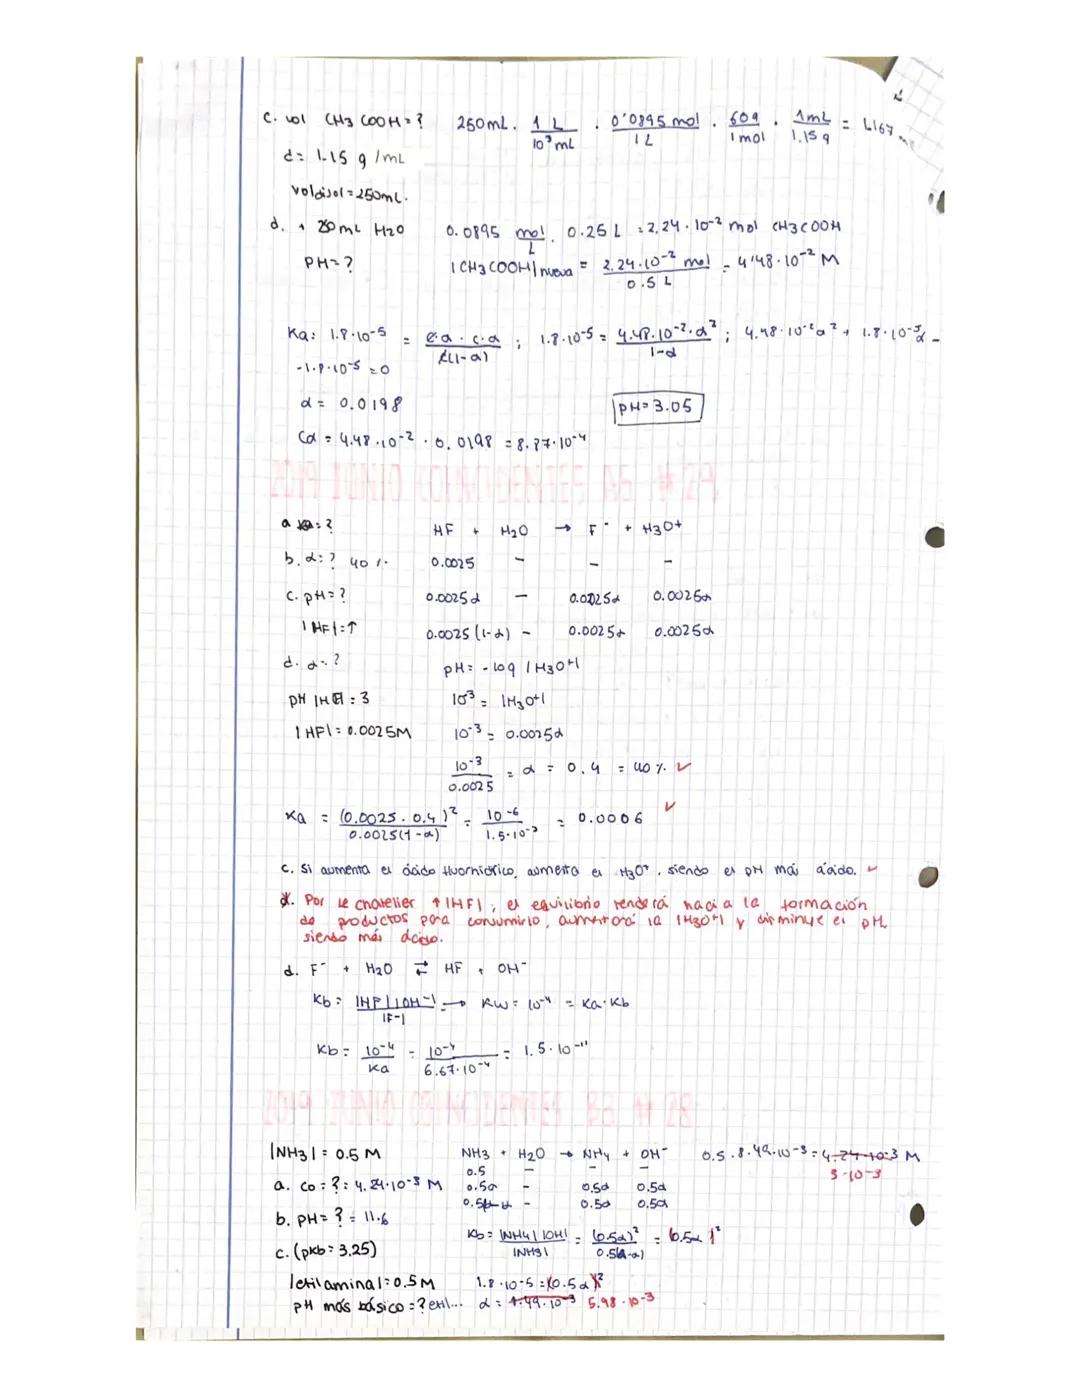 c. vol CH3 COOH = ? 250mL . 1 L / 10³ mL . 0'0895 mol / 1 L . 60g / 1 mol . 1mL / 1.15 g = 1.167
d = 1.15 g /mL
Voldisol = 250mL.
d. + 250mL H2O 0.0895 mol / L . 0.25 L = 2,24 . 10⁻² mol CH3COOH
PH = ? |CH3COOH| nueva = 2,24.10⁻² mol / 0.5 L = 4'48 . 10⁻² M
Ka: 1.8.10⁻⁵ = c.α . c.α / c(1-α) ; 1.8.10⁻⁵ = 4.48.10⁻².α² / 1-α ; 4.48.10⁻²α² + 1.8.10⁻⁵α -
-1.8.10⁻⁵ = 0
α = 0.0198 pH = 3.05
Cα = 4.48.10⁻² . 0.0198 = 8.87.10⁻⁴
2019 JUNIO COINCIDENTES A5 #29
a Ka = ? HF + H2O → F⁻ + H3O+
b. α = ? 40 %. 0.0025 - - -
c. pH = ? 0.0025α - 0.0025α 0.0025α
|HF| = ↑ 0.0025 (1-α) - 0.0025α 0.0025α
d. α = ? pH = - log |H3O+|
pH |HF| = 3 10⁻³ = |H3O+|
|HF| = 0.0025M 10⁻³ = 0.0025α
10⁻³ / 0.0025 = α = 0.4 = 40 %. ✓
Ka = (0.0025 . 0.4)² / 0.0025(1-α) = 10⁻⁶ / 1.5.10⁻³ = 0.0006 ✓
c. Si aumenta el ácido fluorhídrico, aumenta el H3O⁺, siendo el pH más ácido. ✓
d. Por le chatelier ↑ |HF|, el equilibrio tenderá hacia la formación
de productos para consumirlo, aumentará la |H3O+| y disminuye el pH,
siendo más ácido.
d. F⁻ + H2O ⇄ HF + OH⁻
Kb = |HF| |OH⁻| / |F⁻| → KW = 10⁻¹⁴ = Ka . Kb
Kb = 10⁻¹⁴ / Ka = 10⁻¹⁴ / 6.67.10⁻⁴ = 1.5.10⁻¹¹
2019 JUNIO COINCIDENTES B3 # 28
|NH3| = 0.5 M NH3 + H2O → NH4 + OH⁻ 0.5 . 8.49.10⁻³ = 4.24.10⁻³ M
0.5 - - - 3.10⁻³
a. Co = ? = 4.24.10⁻³ M 0.5α - 0.5α 0.5α
0.5(1-α) - 0.5α 0.5α
b. pH = ? = 11.6
Kb = |NH4| |OH| / |NH3| = (0.5α)² / 0.5(1-α) = (0.5α)²
c. (pKb = 3,25)
|etilamina| = 0.5 M 1.8.10⁻⁵ = (0.5α)²
pH más básico = ? etil... α = 8.49.10⁻³ 5.98.10⁻³